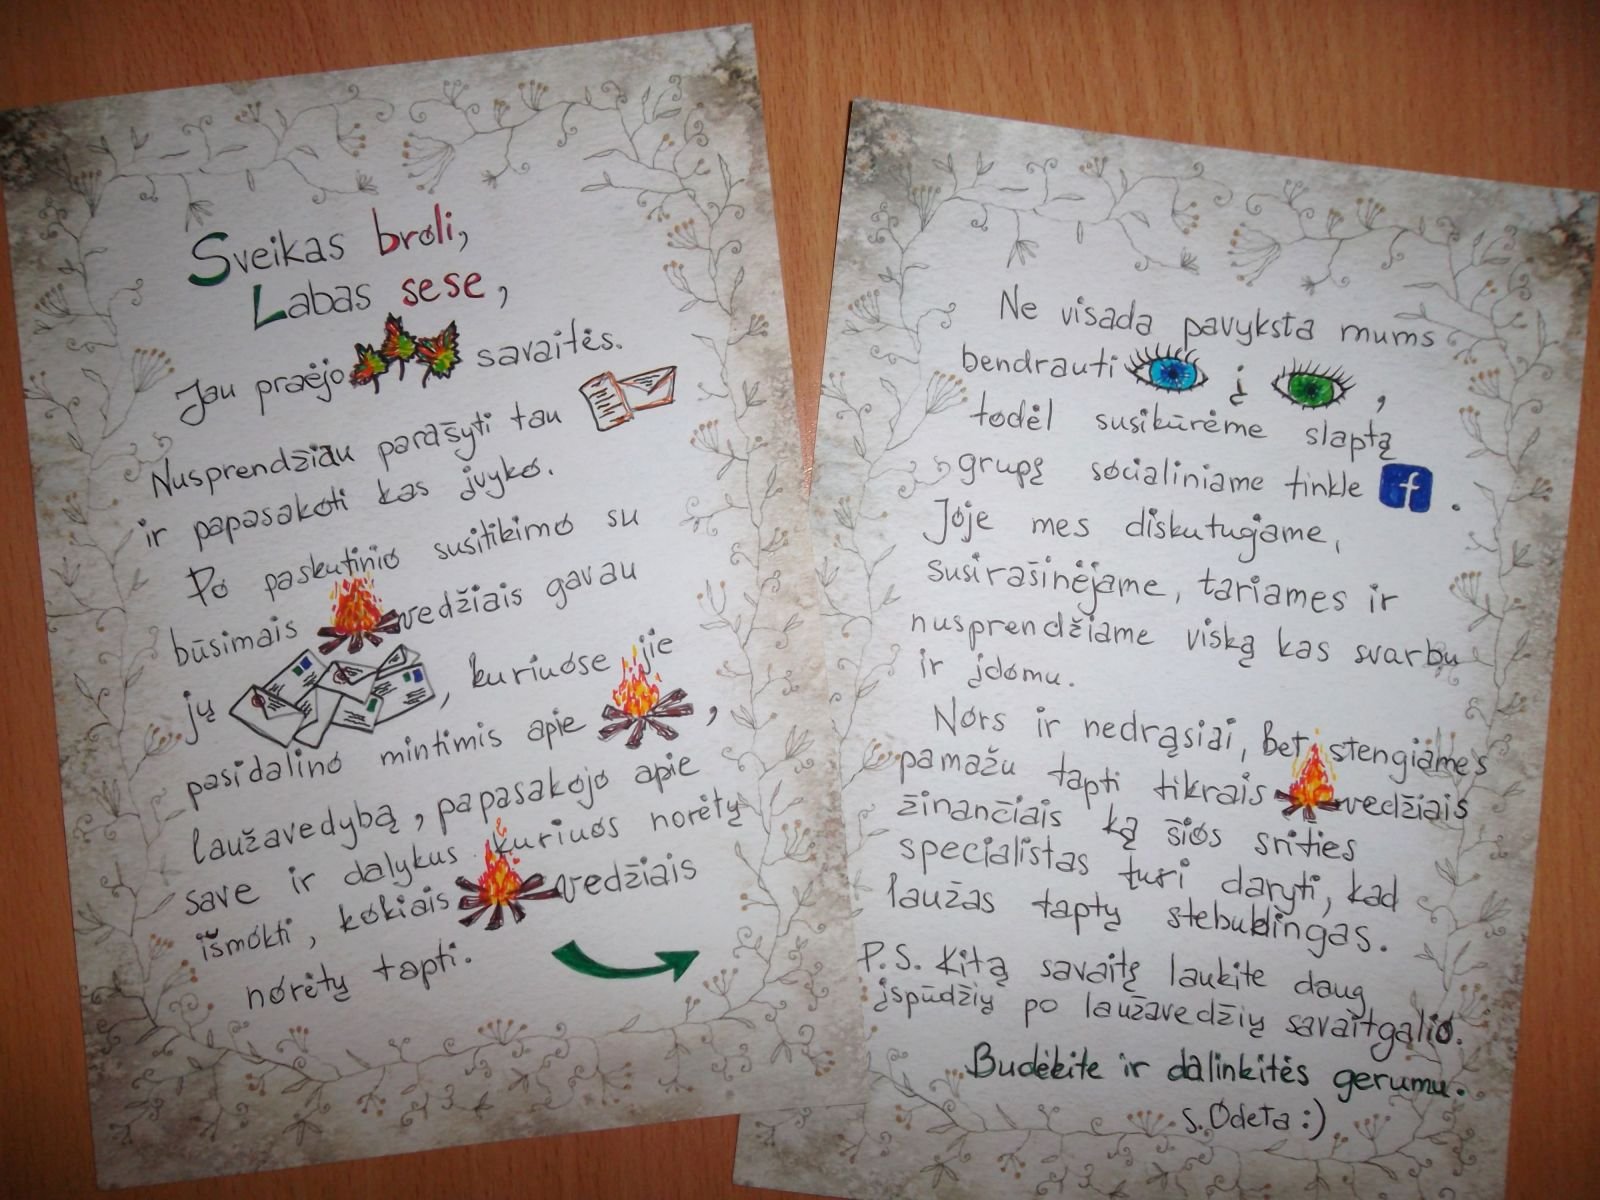 Sveikas broli,
Labas sese,
Jau praėjo savaitės.
Nusprendžiau parašyti tau
ir papasakoti kas įvyko.
Po paskutinio susitikimo su
būsimais vedžiais gavau
jų , kuriuose jie
pasidalino mintimis apie ,
laužavedybą, papasakojo apie
save ir dalykus kuriuos norėtų
išmokti, kokiais vedžiais
norėtų tapti.
Ne visada pavyksta mums
bendrauti į ,
todėl susikūrėme slaptą
grupę socialiniame tinkle f .
Joje mes diskutuojame,
susirašinėjame, tariames ir
nusprendžiame viską kas svarbu
ir įdomu.
Nors ir nedrąsiai, bet stengiamės
pamažu tapti tikrais vedžiais
žinančiais ką šios srities
specialistas turi daryti, kad
laužas taptų stebuklingas.
P.S. Kitą savaitę laukite daug
įspūdžių po laužavedžių savaitgalio.
Budėkite ir dalinkitės gerumu.
s. Odeta :)